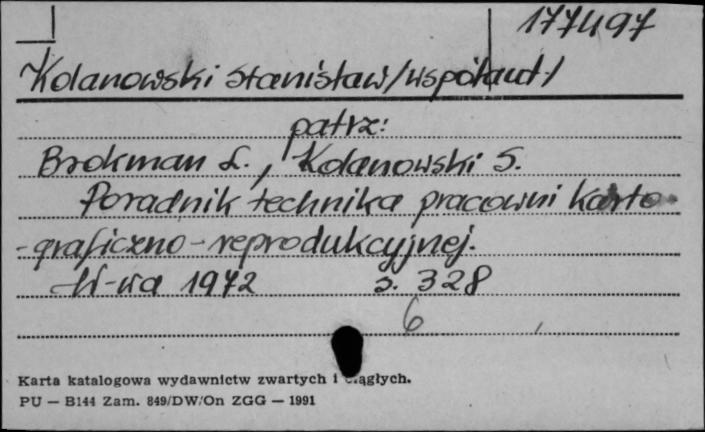 177497
Kolanowski Stanisław /współaut/
patrz:
Brokman L., Kolanowski S.
Poradnik technika pracowni karto
-graficzno-reprodukcyjnej.
W-wa 1972 s. 328
6
Karta katalogowa wydawnictw zwartych i ciągłych.
PU — B144 Zam. 849/DW/On ZGG — 1991